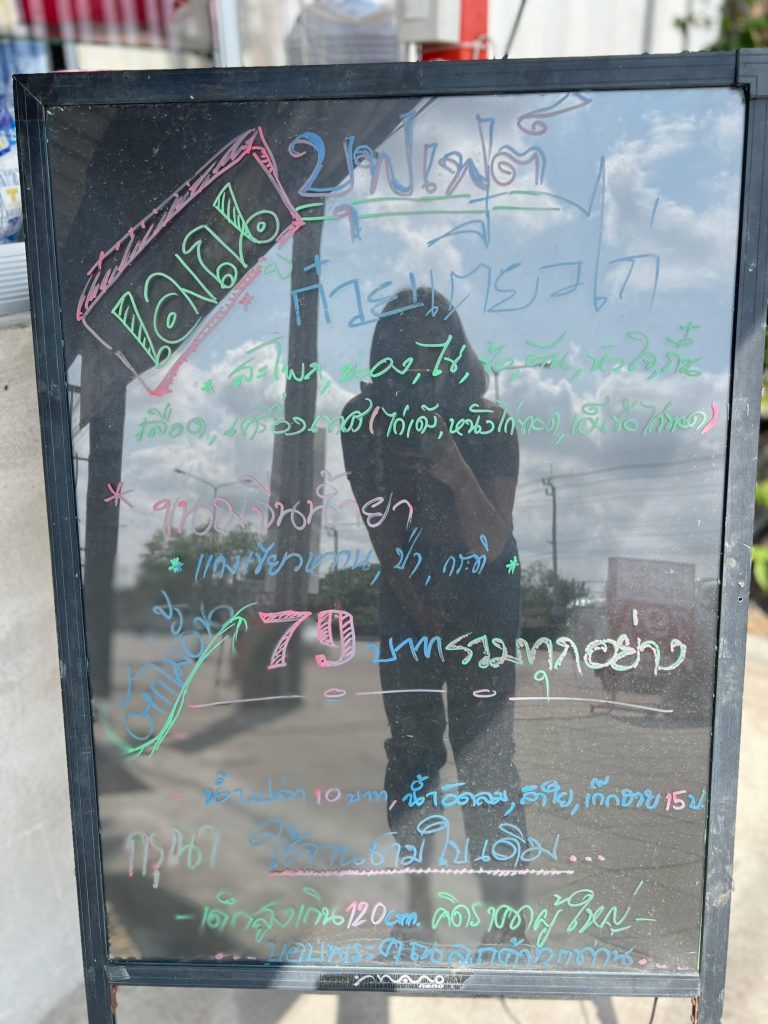 บุฟเฟ่ต์
เมนู
ก๋วยเตี๋ยวไก่
* สะโพก, น่อง, ไข่, ข้อ, ตีน, หัวใจ, กึ๋น
เลือด, เครื่องเทศ (ไก่เส้น, หนังไก่ทอด, เอ็นข้อไก่ทอด)
* ขนมจีนน้ำยา
* แกงเขียวหวาน, ป่า, กะทิ *
79 บาท รวมทุกอย่าง
น้ำเปล่า 10 บาท, น้ำอัดลม, ลำใย, เก๊กฮวย 15 บ.
กรุณา ใช้จานชามใบเดิม...
- เด็กสูงเกิน 120 cm. คิดราคาผู้ใหญ่ -
... ขอบพระคุณลูกค้าทุกท่าน...
nano